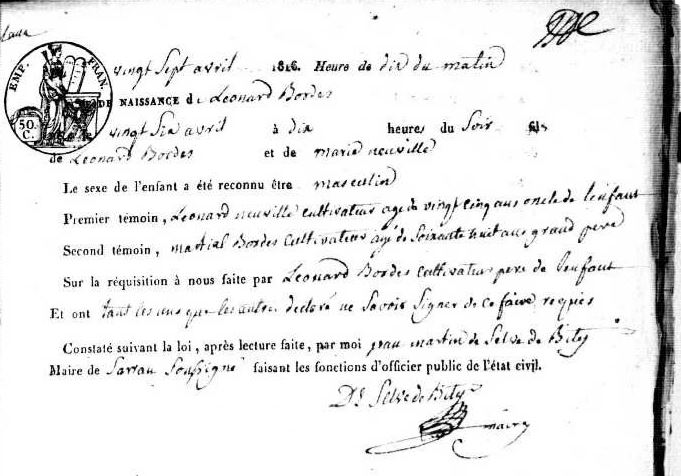 EMP. FRAN.
50. C.
vingt Sept avril 1816. Heure de dix du matin
DE NAISSANCE de Leonard Bordes
vingt Six avril à dix heures du Soir fils
de Leonard Bordes et de marie neuville
Le sexe de l'enfant a été reconnu être masculin
Premier témoin, Leonard neuville cultivateur age de vingt cinq ans oncle de lenfant
Second témoin, martial Bordes cultivateur agé de Soixante huit ans grand pere
Sur la réquisition à nous faite par Leonard Bordes cultivateur pere de lenfant
Et ont tant les uns que les autres declaré ne Savoir Signer de ce faire requis
Constaté suivant la loi, après lecture faite, par moi jean martin de Selve de Bity
Maire de Sarran Soussigné faisant les fonctions d'officier public de l'état civil.
Dt Selve de Bity
maire